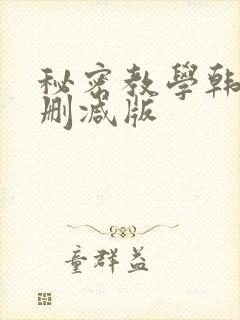 秘密教學韩
删减版
童群益